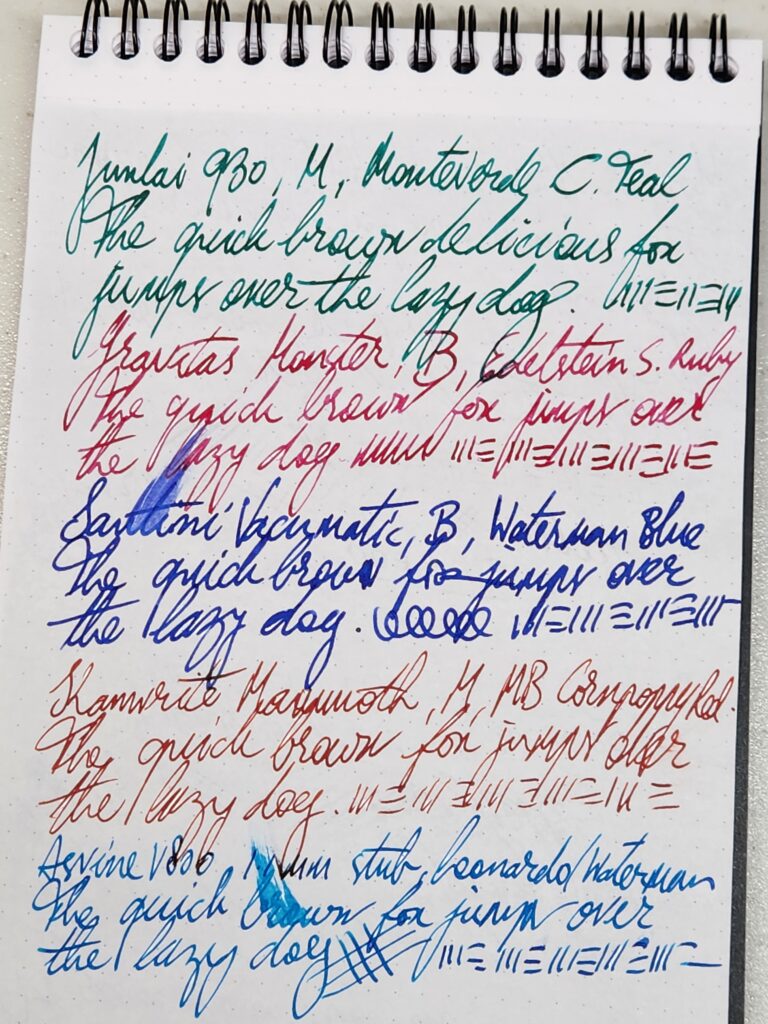 Junlai 930, M, Monteverde C. Teal
The quick brown delicious fox
jumps over the lazy dog.
Gravitas Monster, B, Edelstein S. Ruby
The quick brown fox jumps over
the lazy dog
Santini Vacumatic, B, Waterman Blue
The quick brown fox jumps over
the lazy dog.
Kanwrite Mammoth, M, MB Cornpoppy Red.
The quick brown fox jumps over
the lazy dog.
Asvine V800, stub, Leonardo/Waterman
The quick brown fox jumps over
the lazy dog